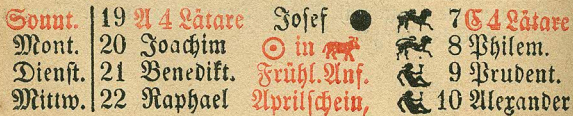 Sonnt. 19 A 4 Lätare Josef ● 7 E 4 Lätare
Mont. 20 Joachim ☉ in 8 Philem.
Dienst. 21 Benedikt. Frühl. Anf. 9 Prudent.
Mittw. 22 Raphael Aprilschein, 10 Alexander